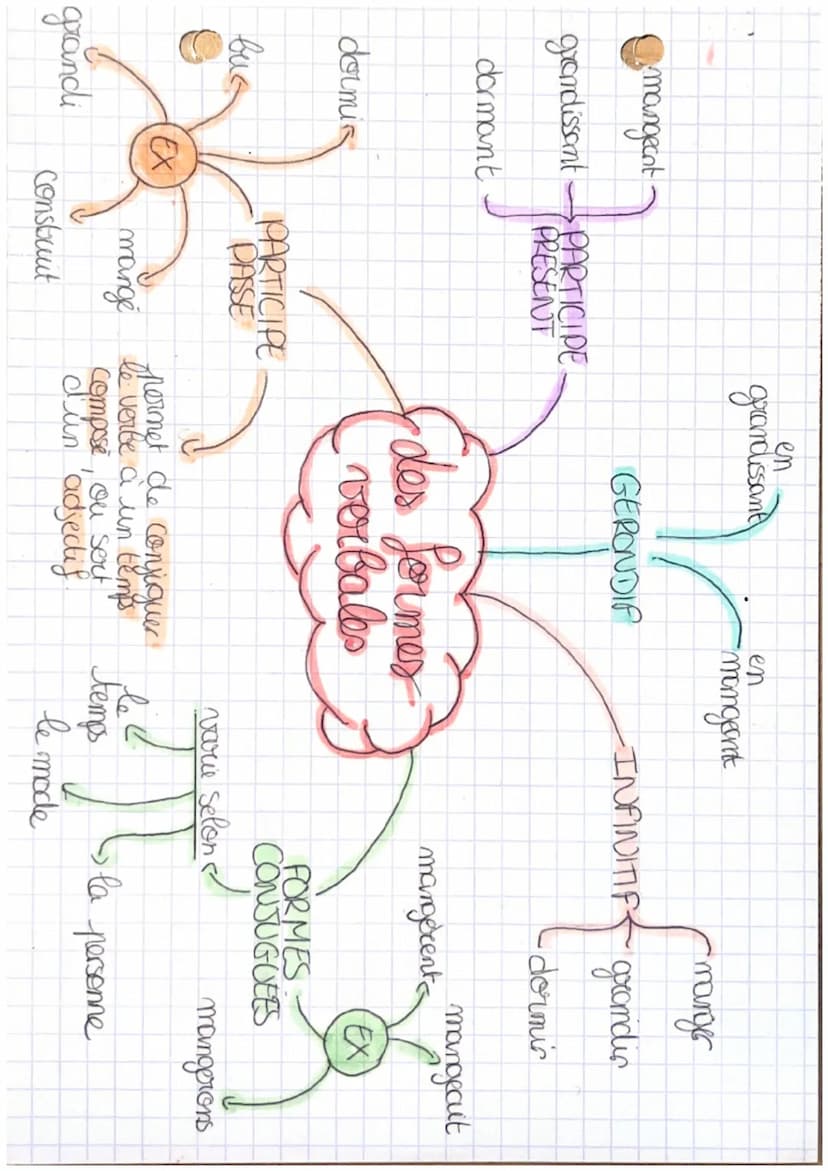 des formes
verbales
PARTICIPE
PRÉSENT
mangeant
grandissant
dormant
GÉRONDIF
en
grandissant
en
mangeant
INFINITIF
manger
grandir
dormir
FORMES
CONJUGUÉES
EX
mangèrent
mangeait
mangerons
varie selon
le
temps
le mode
la personne
PARTICIPE
PASSE
EX
dormi
bu
grandi
construit
mangé
permet de conjuguer
le verbe à un temps
composé, ou sert
d'un adjectif.